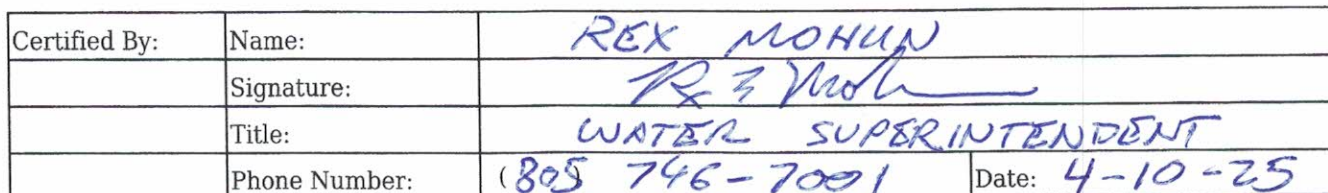 Certified By: Name: REX MOHUN
Signature: Rx E Moh
Title: WATER SUPERINTENDENT
Phone Number: (805) 746-7001 Date: 4-10-25